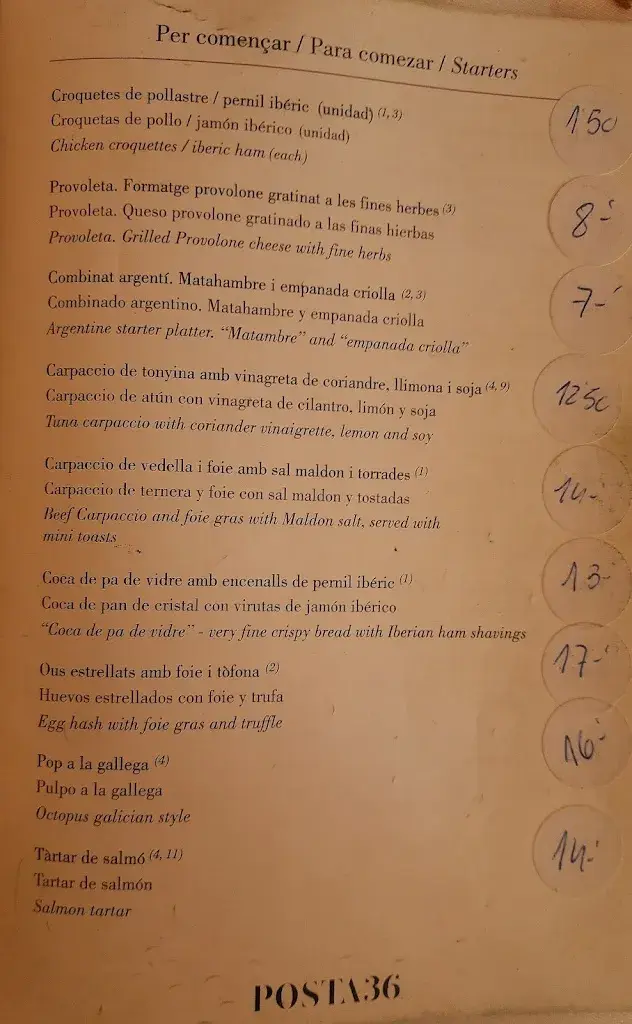 Per començar / Para comezar / Starters
Croquetes de pollastre / pernil ibéric (unidad) (1, 3)
150
Croquetas de pollo / jamón ibérico (unidad)
Chicken croquettes / iberic ham (each)
Provoleta. Formatge provolone gratinat a les fines herbes (3)
8-
Provoleta. Queso provolone gratinado a las finas hierbas
Provoleta. Grilled Provolone cheese with fine herbs
Combinat argentí. Matahambre i empanada criolla (2, 3)
7-
Combinado argentino. Matahambre y empanada criolla
Argentine starter platter. “Matambre” and “empanada criolla”
Carpaccio de tonyina amb vinagreta de coriandre, llimona i soja (4, 9)
1250
Carpaccio de atún con vinagreta de cilantro, limón y soja
Tuna carpaccio with coriander vinaigrette, lemon and soy
Carpaccio de vedella i foie amb sal maldon i torrades (1)
14-
Carpaccio de ternera y foie con sal maldon y tostadas
Beef Carpaccio and foie gras with Maldon salt, served with
mini toasts
Coca de pa de vidre amb encenalls de pernil ibéric (1)
13-
Coca de pan de cristal con virutas de jamón ibérico
“Coca de pa de vidre” - very fine crispy bread with Iberian ham shavings
Ous estrellats amb foie i tòfona (2)
17-
Huevos estrellados con foie y trufa
Egg hash with foie gras and truffle
Pop a la gallega (4)
16-
Pulpo a la gallega
Octopus galician style
Tàrtar de salmó (4, 11)
14-
Tartar de salmón
Salmon tartar
POSTA36